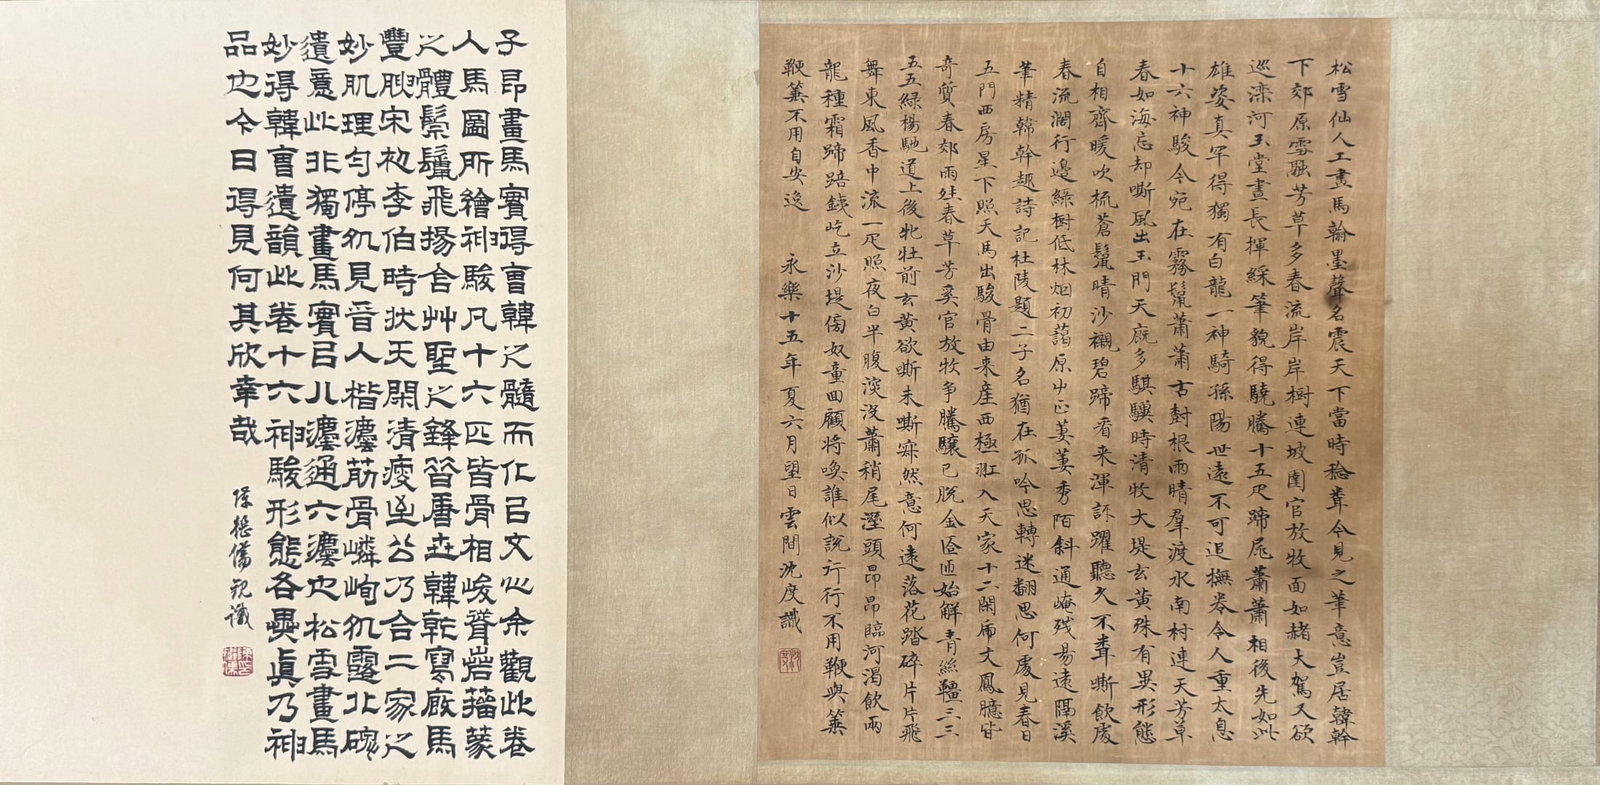 松雪仙人工畫馬翰墨聲名震天下當時稔聋今見之筆意豈居韓幹
下郊原雪融芳草多春流岸岸樹連坡圉官放牧面如赭大駕又欲
巡灤河玉堂晝長揮綵筆貌得驍騰十五疋蹄尾蕭蕭相後先如此
雄姿真罕得獨有白龍一神騎孫陽世遠不可追撫卷令人重太息
十六神駿今宛在霧鬣蕭蕭古對根雨晴羣渡水南村連天芳草
春如海忘却嘶風出玉門天廐多騏驥時清牧大堤玄黃殊有異形態
自相齊暖吹梳蒼鬣晴沙襯碧蹄看来渾訝躍聽久不聋嘶飲處
春流濶行邊綠樹低林烟初藹原屮正萋萋秀陌斜通崦残昜遠隔溪
筆精韓幹趣詩記杜陵題二子名猶在孤吟思轉迷翻思何處見春日
五門西房星下照天馬出駿骨由来産西極羾入天家十二閑虎文鳳臆皆
奇質春郊雨往春草芳奚官放牧争騰驤已脱金匼匝始解青絲韁三三
五五綠楊馳道上後牝牡前玄黃欲嘶未嘶寂然意何遠落花踏碎片片飛
舞東風香中流一疋照夜白半腹深没蕭稍尾溼頭昂昂臨河渴飲兩
龍種霜蹄踣鐵屹立沙堤傍奴童回顧将喚誰似說行行不用鞭與箠
鞭箠不用自安逸 永樂十五年夏六月望日雲間沈度識
子昂畫馬實得曹韓之髓而化㠯文心余觀此卷
人馬圖所繪神駿凡十六匹皆骨相峻聳若籀篆
之體鬃鬣飛揚合艸聖之鋒昝唐丗韓乾寫廄馬
豐腴宋初李伯時狀天閑清瘦迄公乃合二家之
妙肌理勻停仉見晉人楷灋筋骨嶙峋仉露北碗
遺意此非獨畫馬實㠯儿灋通六灋也松雪畫馬
妙得韓曹遺韻此卷十六神駿形態各異真乃神
品也今日得見何其欣幸哉
陳懋儒观識